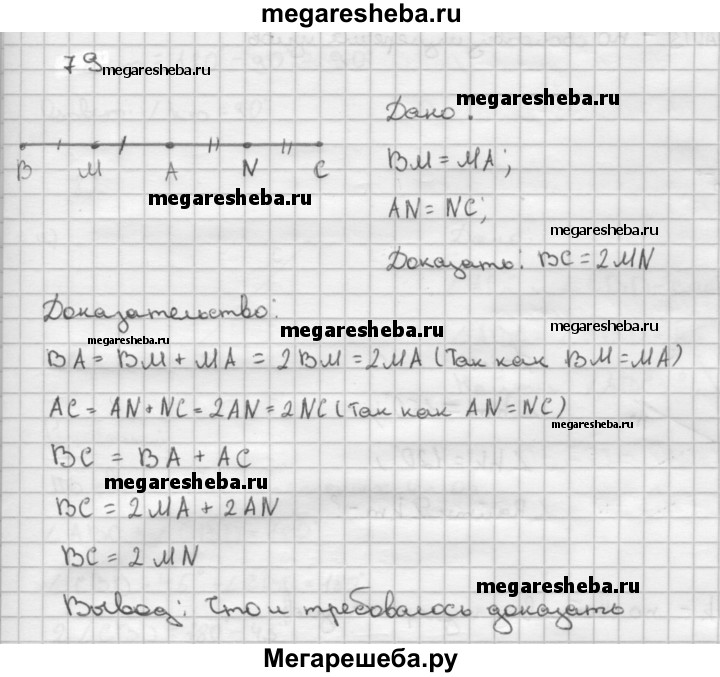 megaresheba.ru
79
megaresheba.ru
megaresheba.ru
Дано:
B M A N C
BM = MA;
megaresheba.ru
AN = NC;
megaresheba.ru
Доказать: BC = 2MN
Доказательство:
megaresheba.ru
megaresheba.ru
megaresheba.ru
BA = BM + MA = 2BM = 2MA (Так как BM = MA)
AC = AN + NC = 2AN = 2NC (Так как AN = NC)
megaresheba.ru
BC = BA + AC
megaresheba.ru
BC = 2MA + 2AN
BC = 2MN
megaresheba.ru
Вывод: Что и требовалось доказать
Мегарешеба.ру